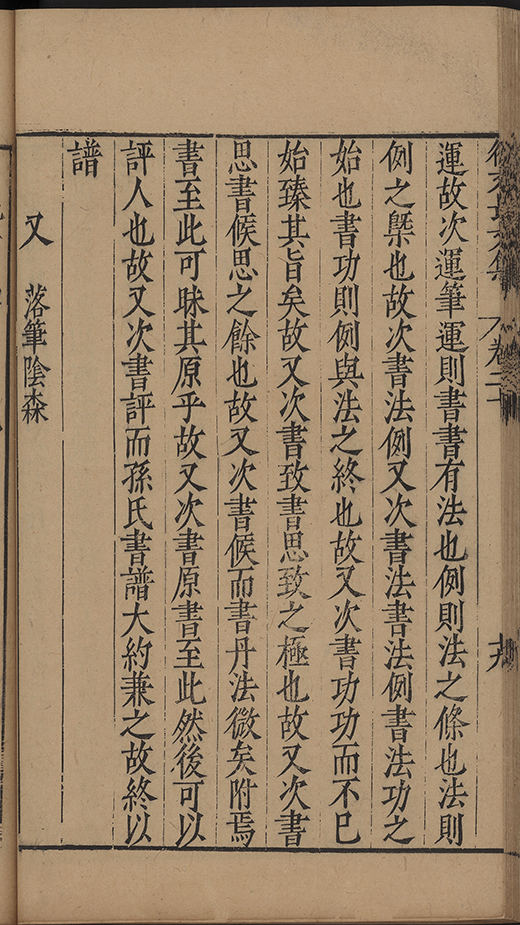 徐文長文集 卷二十
運故次運筆運則書書有法也例則法之條也法則
例之槩也故次書法例又次書法書法例書法功之
始也書功則例與法之終也故又次書功功而不已
始臻其旨矣故又次書致書思致之極也故又次書
思書候思之餘也故又次書候而書丹法微矣附焉
書至此可昧其原乎故又次書原書至此然後可以
評人也故又次書評而孫氏書譜大約兼之故終以
譜
又 落筆陰森